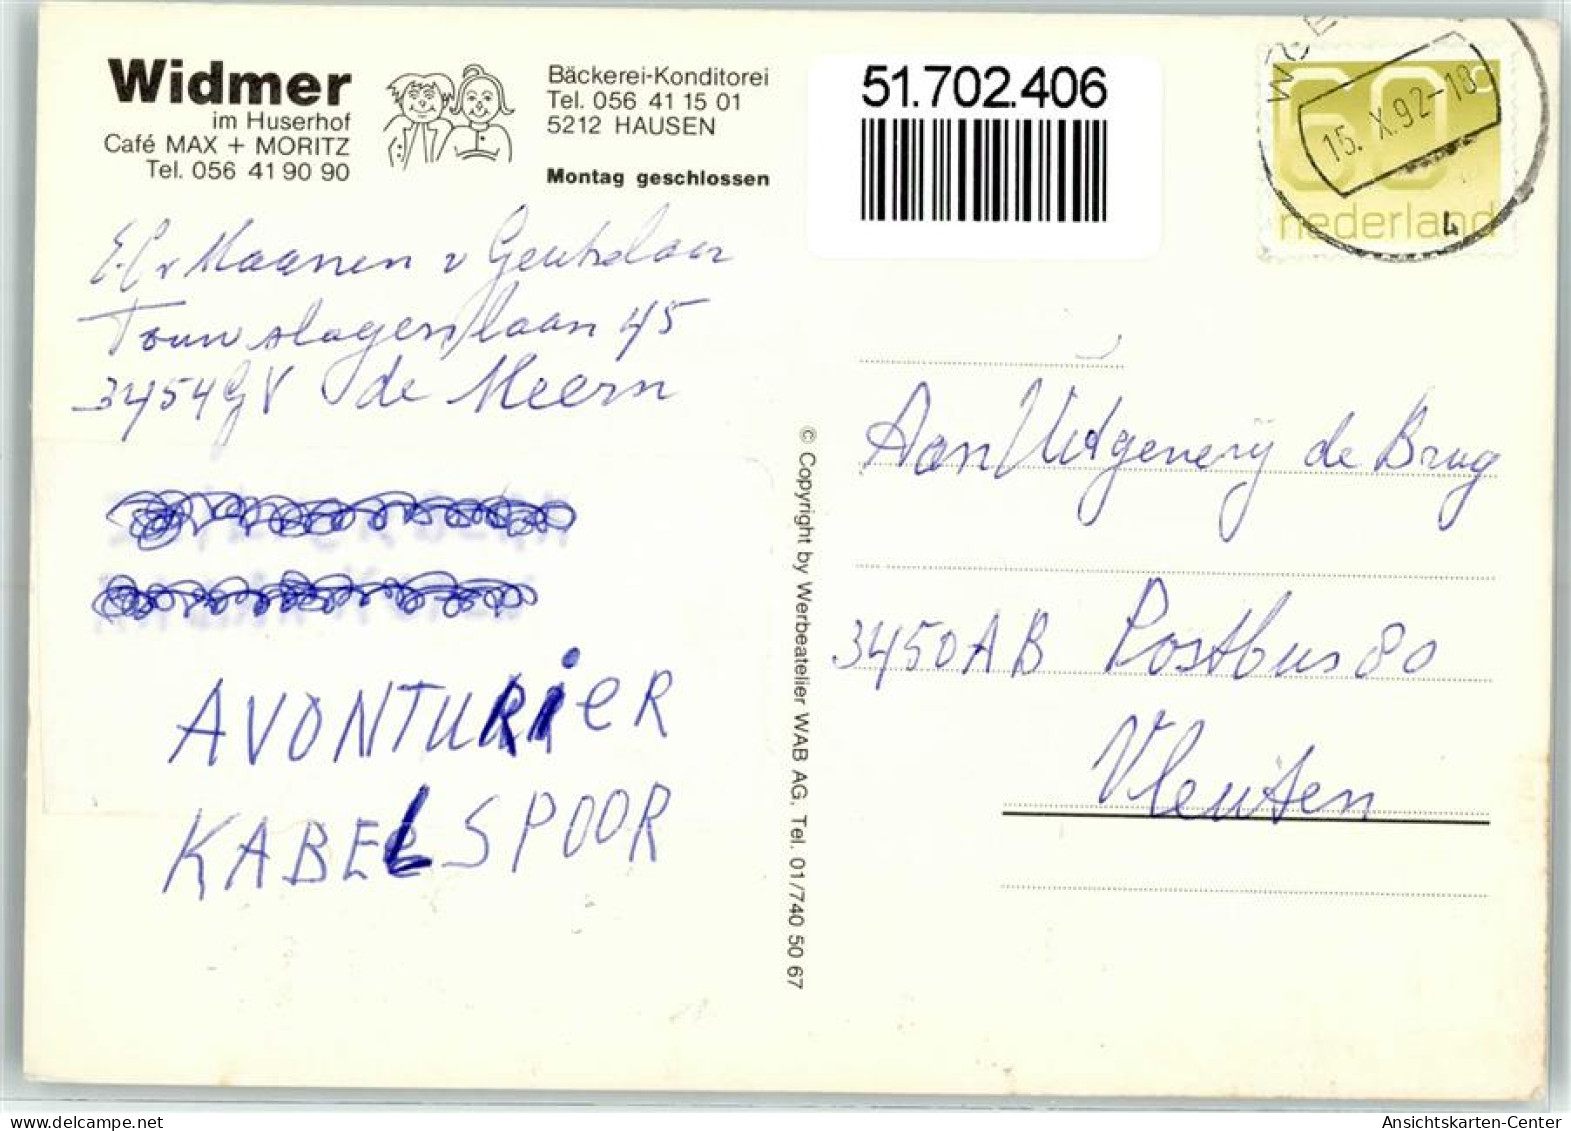 Widmer
im Huserhof
Café MAX + MORITZ
Tel. 056 41 90 90
Bäckerei-Konditorei
Tel. 056 41 15 01
5212 HAUSEN
Montag geschlossen
51.702.406
60
nederland
15. X.92-18
4
E.C v Maanen v Geutselaar
Touwslagerslaan 45
3454GV de Meern
AVONTURIER
KABELSPOOR
© Copyright by Werbeatelier WAB AG, Tel. 01/740 50 67
Aan Uitgeverij de Brug
3450AB Postbus 80
Vleuten
Ansichtskarten-Center